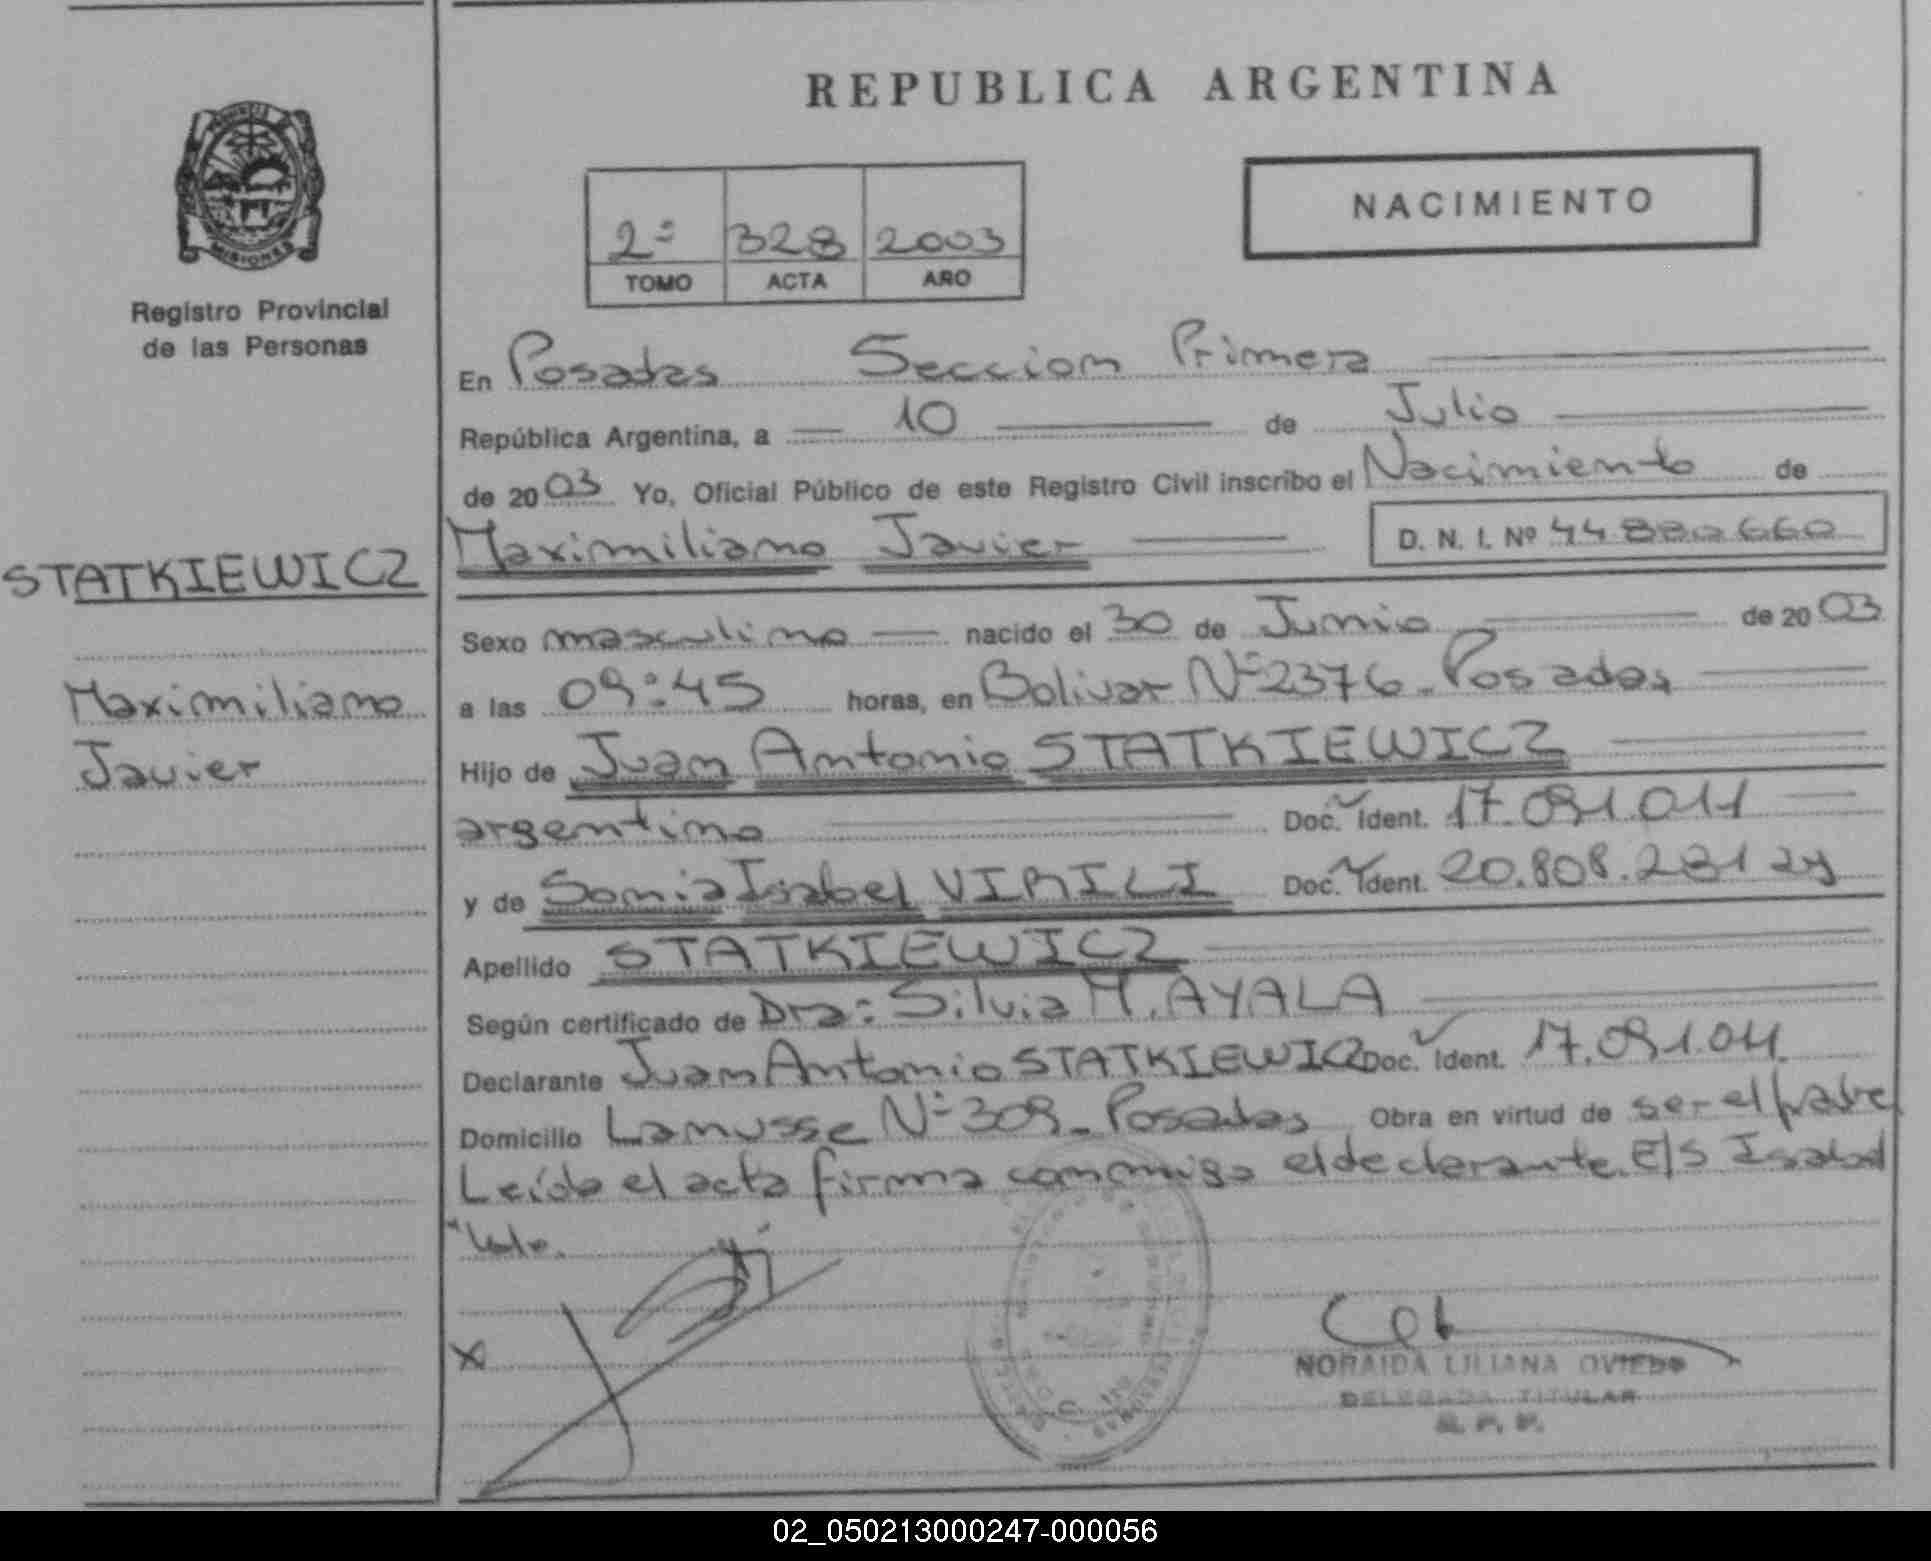 REPUBLICA ARGENTINA
MISIONES
Registro Provincial
de las Personas
2º 328 2003
TOMO ACTA AÑO
NACIMIENTO
En Posadas Seccion Primera
República Argentina, a 10 de Julio
de 2003 Yo, Oficial Público de este Registro Civil inscribo el Nacimiento de
Maximiliano Javier D. N. I. Nº 44.880.660
STATKIEWICZ
Maximiliano
Javier
Sexo masculino nacido el 30 de Junio de 2003
a las 09:45 horas, en Bolivar Nº 2376. Posadas
Hijo de Juan Antonio STATKIEWICZ
argentino Doc. Ident. 17.091.011
y de Sonia Isabel VIRILI Doc. Ident. 20.808.281
Apellido STATKIEWICZ
Según certificado de Dra: Silvia M. AYALA
Declarante Juan Antonio STATKIEWICZ Doc. Ident. 17.091.011.
Domicilio Lanusse Nº 309. Posadas Obra en virtud de ser el padre
Leída el acta firma conmigo el declarante. E/S Isabel
Vale.
X
NORAIDA LILIANA OVIEDO
DELEGADA TITULAR
R. P. P.
02_050213000247-000056